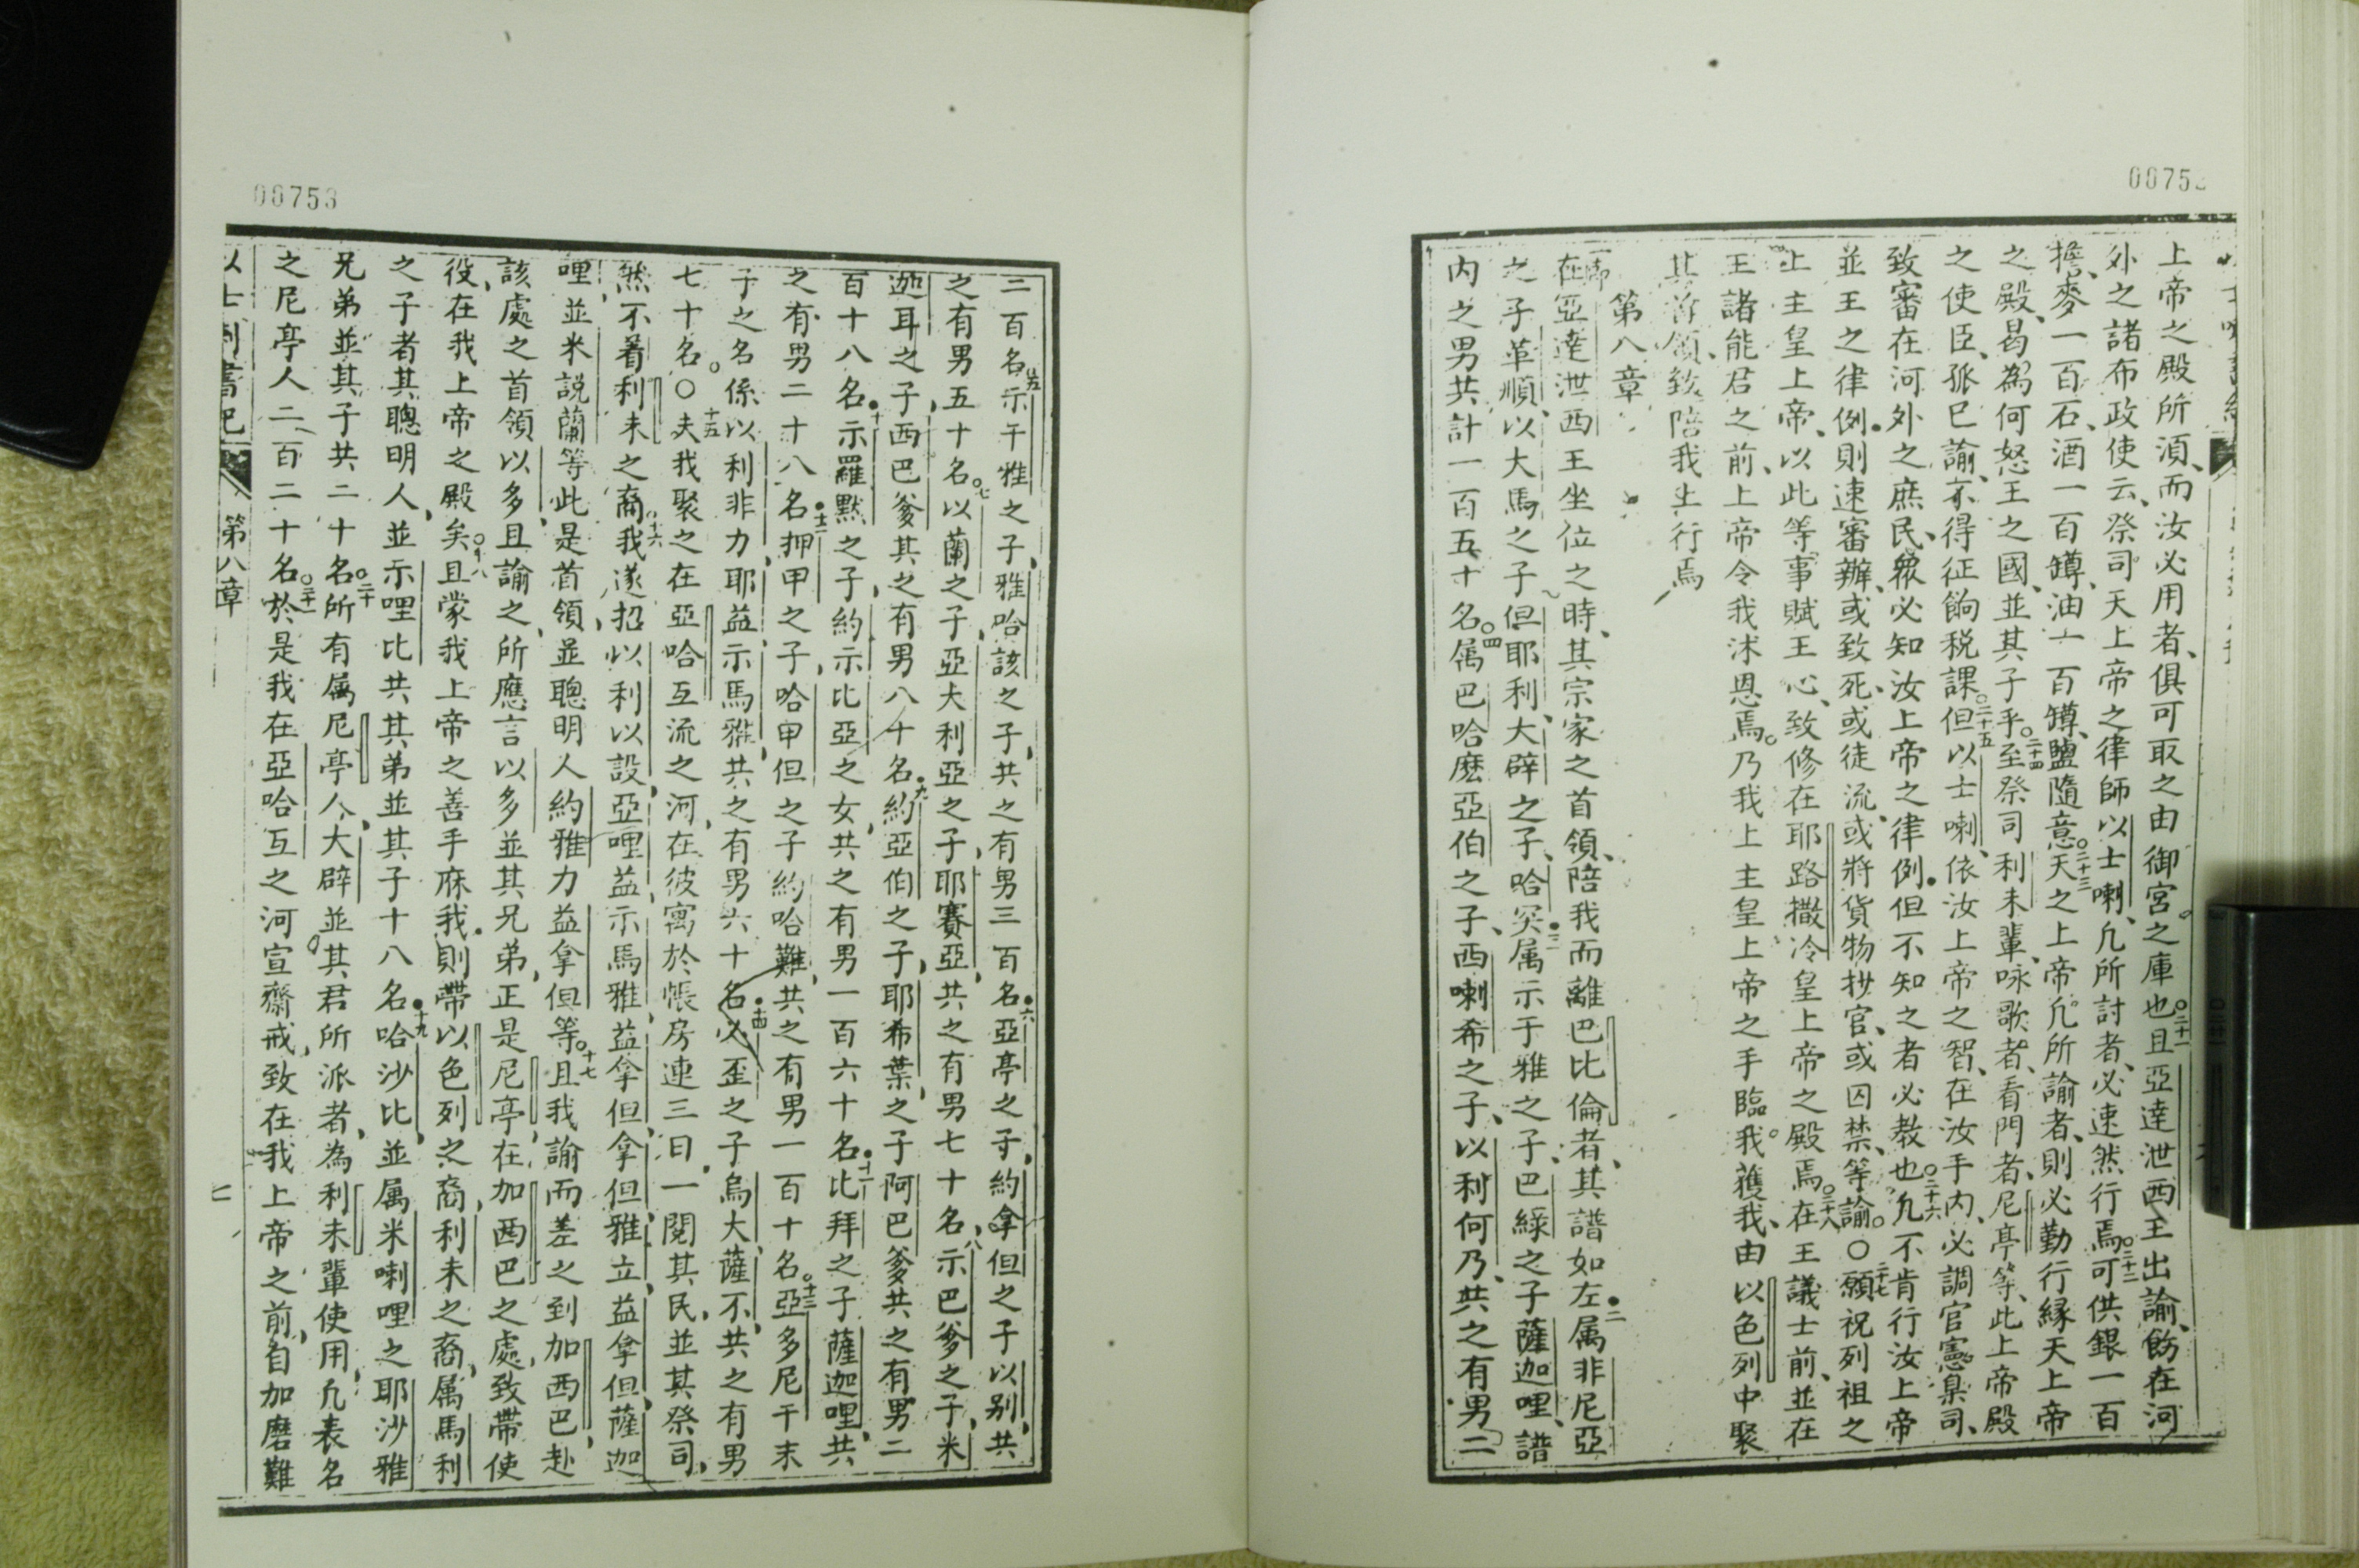 上帝之殿所須、而汝必用者、俱可取之由御宮之庫也○二十一且亞達泄西王出諭、飭在河
外之諸布政使云、祭司天上帝之律師以士喇、凢所討者、必速然行焉○二十二可供銀一百
擔、麥一百石、酒一百罇、油一百罇、鹽隨意○二十三天之上帝凢所諭者、則必勤行縁天上帝
之殿、曷為何怒王之國、並其子乎○二十四至祭司利未輩、咏歌者、看門者、尼亭等、此上帝殿
之使臣、孤巳諭、不得征餉税課○二十五但以士喇、依汝上帝之智、在汝手内、必調官憲臬司、
致審在河外之庶民、衆必知汝上帝之律例但不知之者必教也○二十六凢不肯行汝上帝
並王之律例、則速審辦、或致死、或徒流、或將貨物抄官、或囚禁、等諭。○二十七願祝列祖之
上主皇上帝、以此等事賦王心、致修在耶路撒冷皇上帝之殿焉○二十八在王議士前、並在
王諸能君之前、上帝令我沭恩焉。乃我上主皇上帝之手臨我。獲我、由以色列中聚
其首領、致陪我上行焉
第八章
在亞達泄西王坐位之時、其宗家之首領、陪我而離巴比倫者、其譜如左二属非尼亞
之子革順、以大馬之子但耶利、大辟之子、哈突三属示于雅之子、巴綠之子薩迦哩、譜
内之男共計一百五十名○四属巴哈麽亞伯之子、西喇希之子、以利何乃、共之有男二
00753
二百名五示干雅之子、雅哈該之子、共之有男三百名六亞亭之子、約拿但之子以别、共
之有男五十名○七以蘭之子、亞大利亞之子、耶賽亞、共之有男七十名、八示巴爹之子、米
迦耳之子西巴爹其之有男八十名九約亞伯之子、耶希葉、之子阿巴爹共之有男二
百十八名十示羅黙之子、約示比亞之女、共之有男一百六十名十一比拜之子薩迦哩、共
之有男二十八名十二押甲之子、哈甲但之子約哈難、共之有男一百十名○十三亞多尼干末
子之名係以利非力、耶益、示馬雅、共之有男六十名十四必歪之子烏大、薩不、共之有男
七十名○○十五夫我聚之在亞哈互流之河、在彼寓於帳房連三日、一閲其民、並其祭司、
然不着利未之裔○十六我遂招以利以設、亞哩益、示馬雅、益拿但、拿但、雅立、益拿但、薩迦
哩、並米説蘭等此是首領、並聰明人約雅力益拿但等○十七且我諭而差之到加西巴、赴
該處之首領以多、且諭之、所應言以多並其兄弟、正是尼亭、在加西巴之處、致帶使
役、在我上帝之殿矣○十八且蒙我上帝之善手庥我、則帶以色列之裔、利未之裔、属馬利
之子者其聰明人、並示哩比共其弟並其子十八名十九哈沙比、並属米喇哩之耶沙雅
兄弟並其子共二十名○二十所有属尼亭人、大辟並其君所派者、為利未輩使用、凢表名
之尼亭人二百二十名○二十一於是我在亞哈互之河宣齋戒、致在我上帝之前、自加磨難
第八章